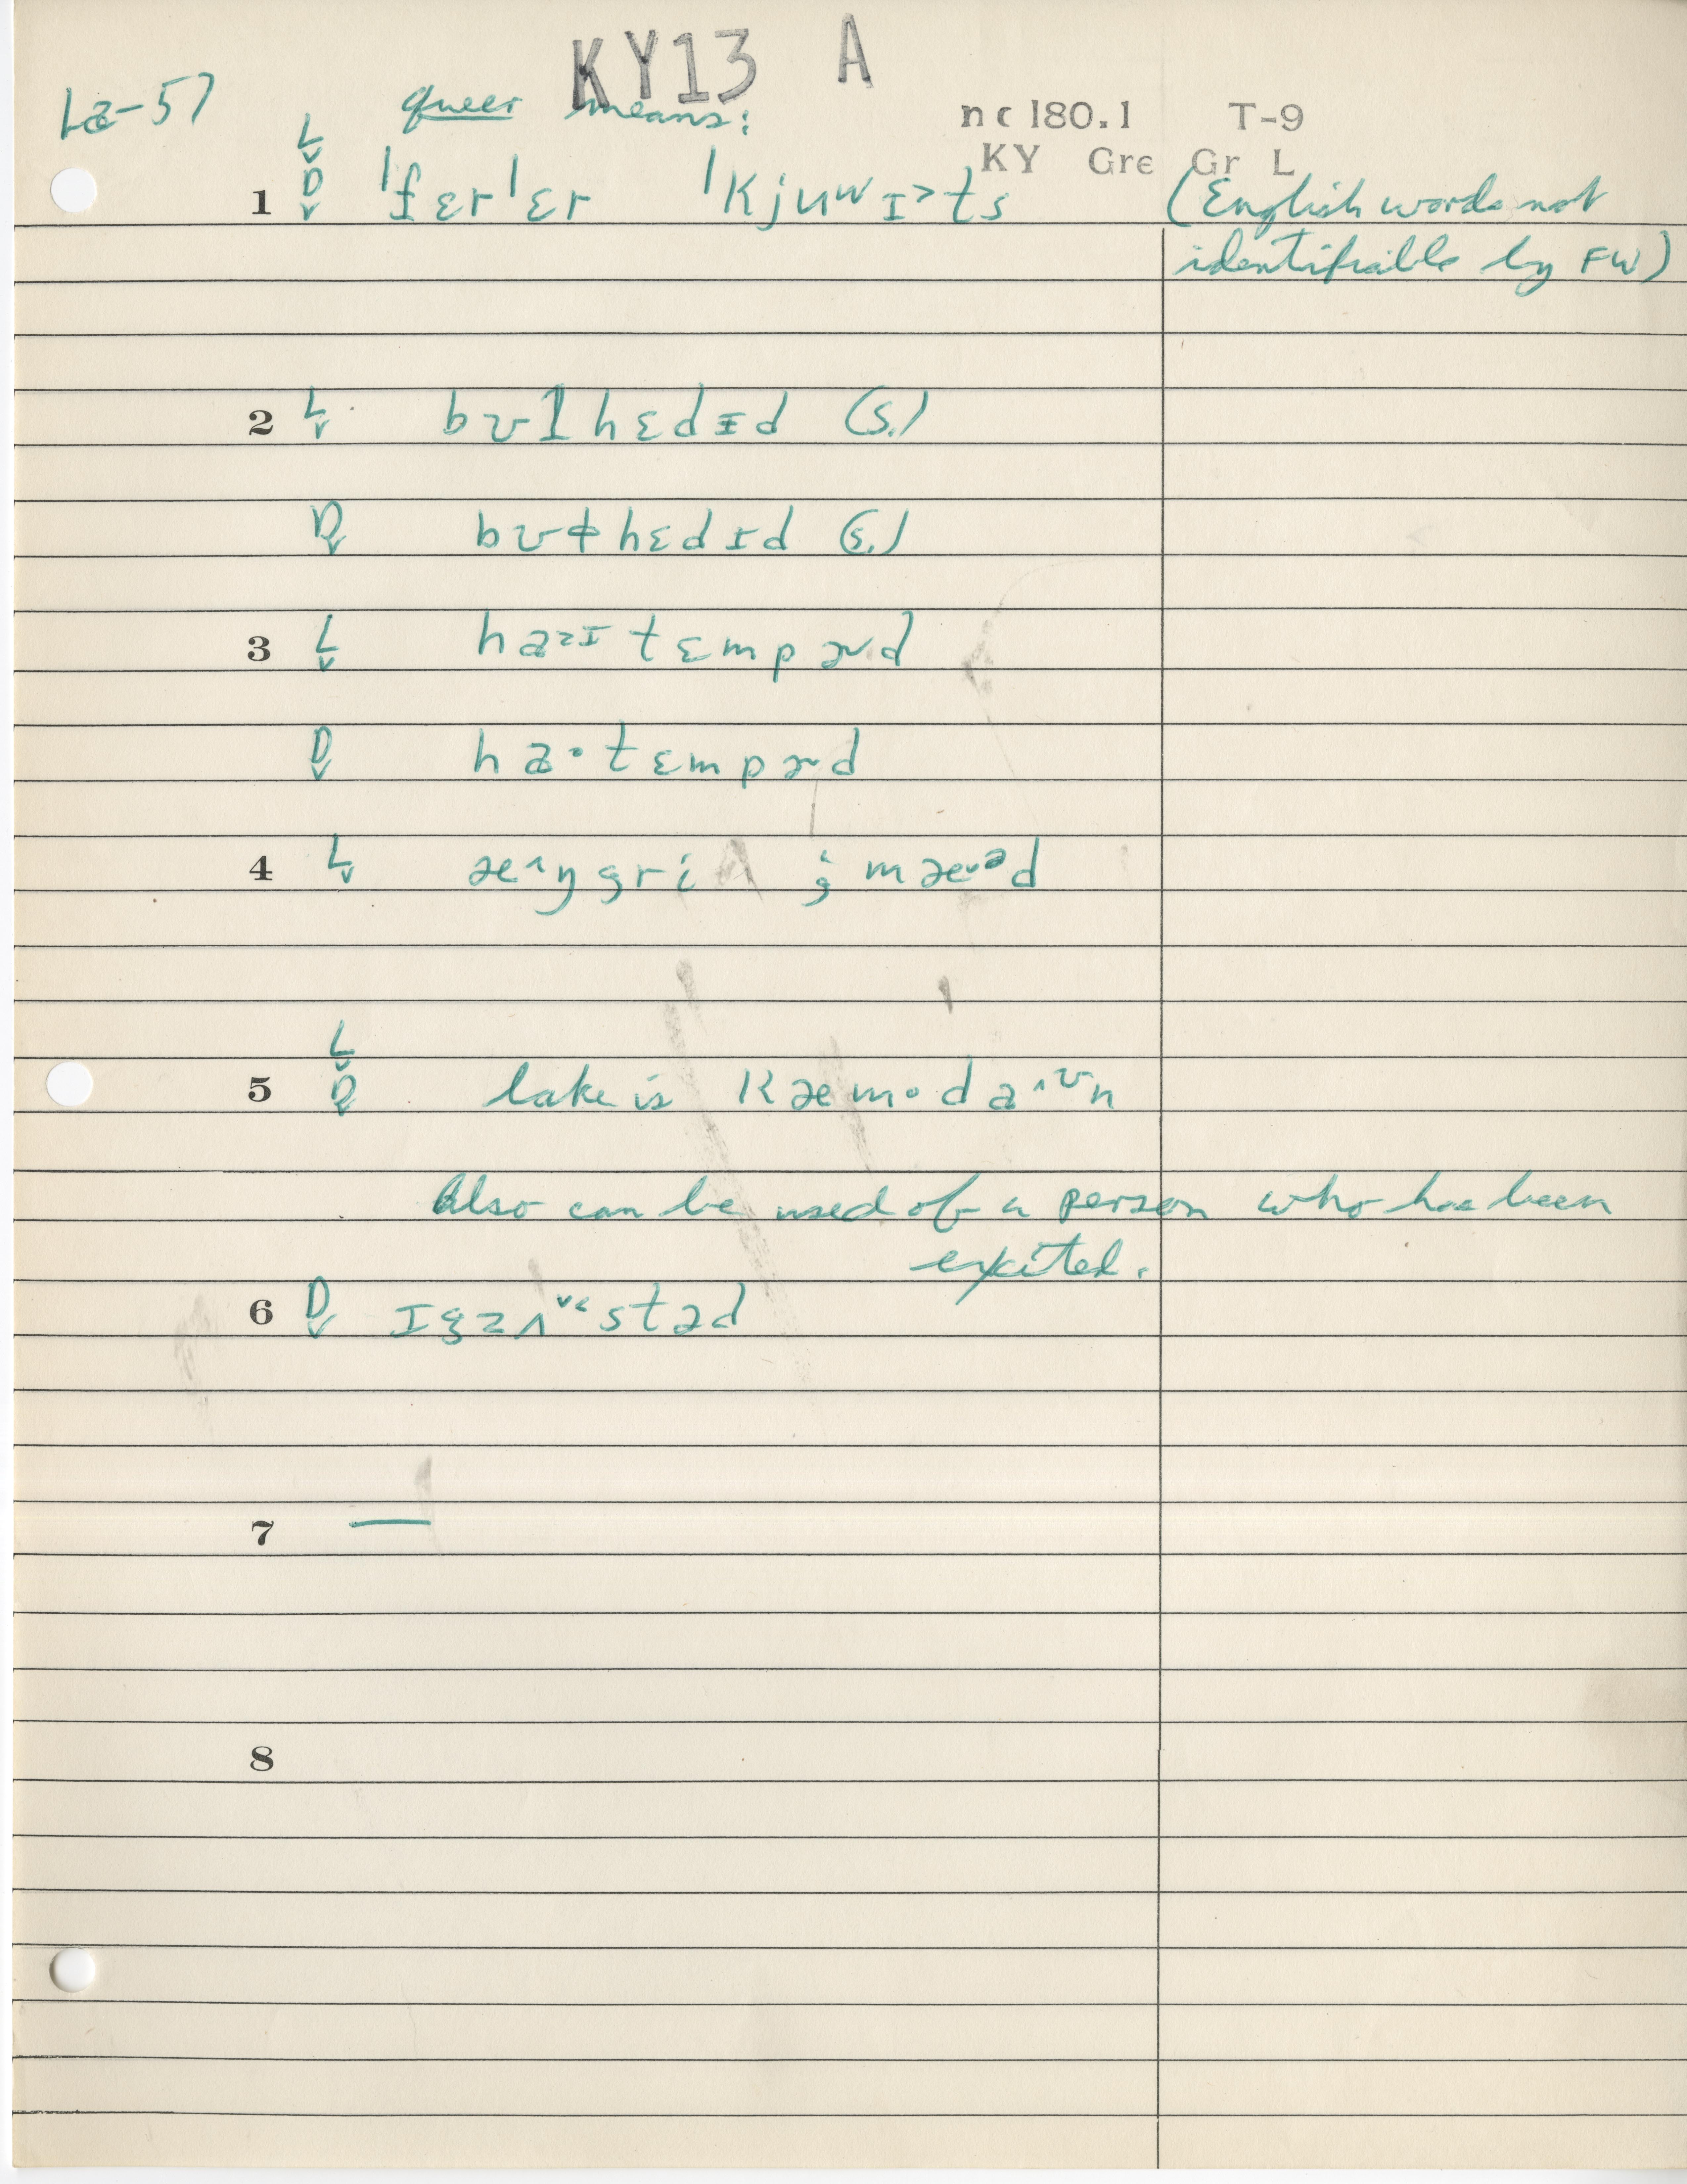 KY13 A
La-57
queer means:
nc 180.1 T-9
KY Gre Gr L
L
1 D ˈfɛrˈɛr ˈkjuwɪ>ts (English words not
identifiable by FW)
2 L bʊlhɛdɪd (S.)
D bʊɫhɛdɪd (S.)
3 L tɛmpɚd
D ha·tɛmpɚd
4 L æ^ŋgri ; d
L
5 D lake is kæm·da^ʊn
Also can be used of a person who has been
excited.
6 D stəd
7 —
8